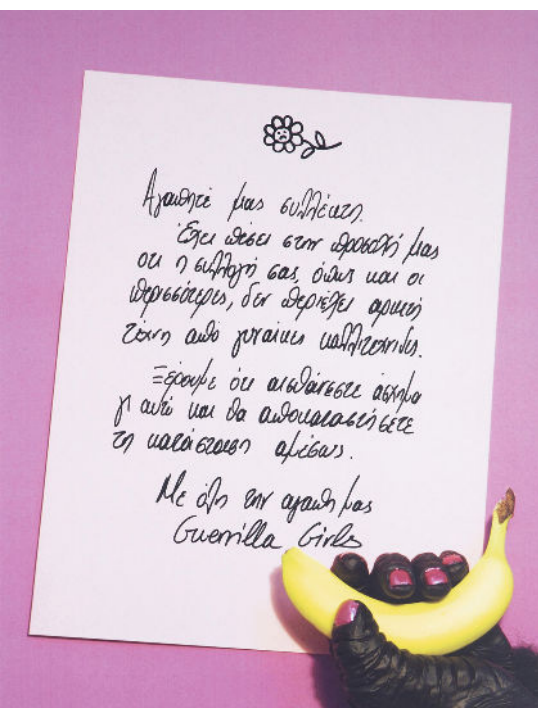 Αγαπητέ μας συλλέκτη.
Έχει πέσει στην προσοχή μας
οτι η συλλογή σας, όπως και οι
περισσότερες, δεν περιέχει αρκετή
τέχνη από γυναίκες καλλιτέχνιδες.
Ξέρουμε ότι αισθάνεστε άσχημα
γι αυτό και θα αποκαταστήσετε
τη κατάσταση αμέσως.
Με όλη την αγάπη μας
Guerrilla Girls